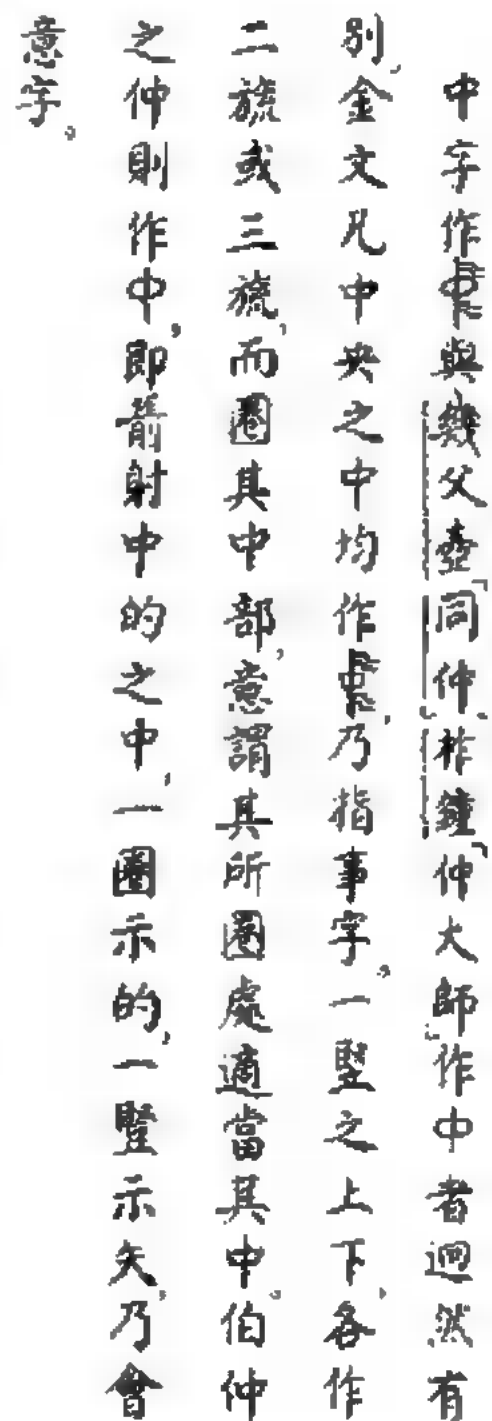 中字作𠁩與幾父壺「同仲」柞鐘「仲大師」作中者迥然有
別，金文凡中央之中均作𠁩，乃指事字。一竪之上下，各作
二旒或三旒，而圈其中部，意謂其所圈處適當其中。伯仲
之仲則作中，即箭射中的之中，一圈示的，一豎示矢，乃會
意字。